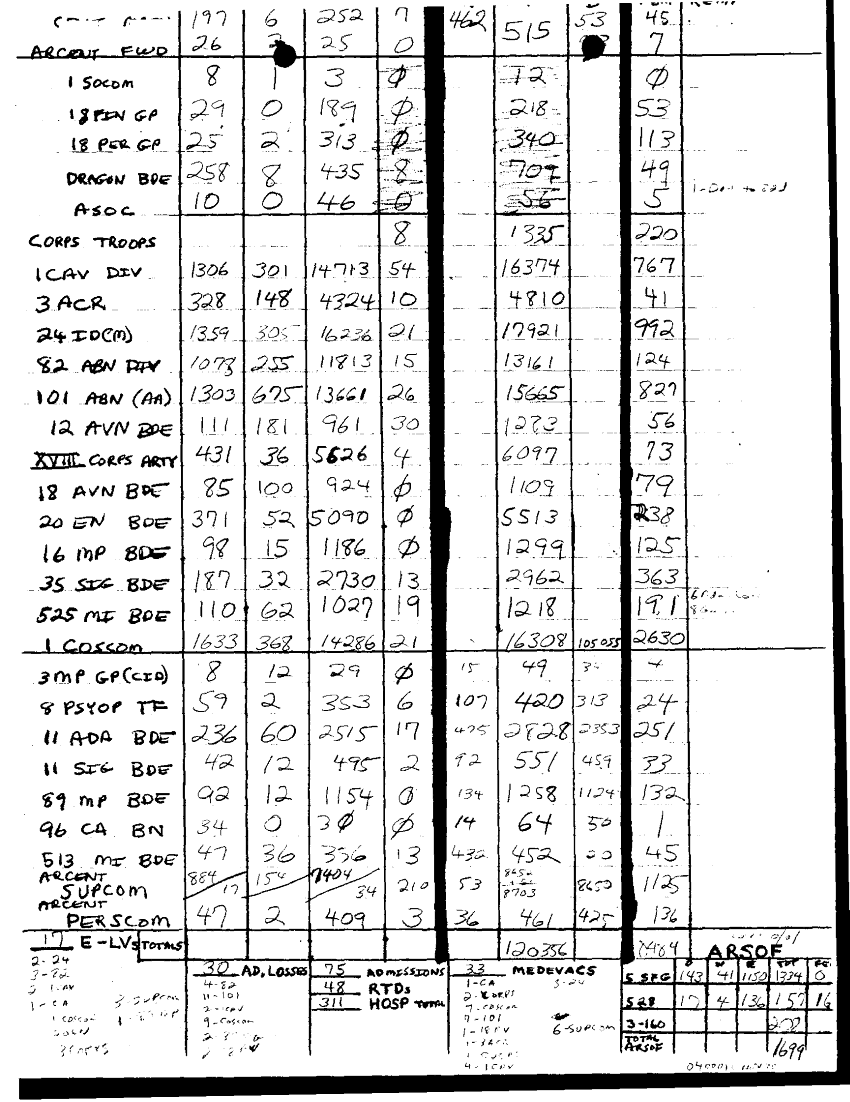 197 6 252 7 462 515 53 45
ARCENT FWD 26 25 0 7
1 SOCOM 8 1 3 Ø 12 Ø
18 FIN GP 29 0 189 Ø 218 53
18 PER GP 25 2 313 Ø 340 113
DRAGON BDE 258 8 435 8 709 49
ASOC 10 0 46 0 56 5
CORPS TROOPS 8 1335 220
1 CAV DIV 1306 301 14713 54 16374 767
3 ACR 328 148 4324 10 4810 41
24 ID(M) 1359 305 16236 21 17921 992
82 ABN DIV 1073 255 11813 15 13161 124
101 ABN (AA) 1303 675 13661 26 15665 827
12 AVN BDE 111 181 961 30 56
XVIII CORPS ARTY 431 36 5626 4 6097 73
18 AVN BDE 85 100 924 Ø 1109 79
20 EN BDE 371 52 5090 Ø 5513 238
16 MP BDE 98 15 1186 Ø 1299 125
35 SIG BDE 187 32 2730 13 2962 363
525 MI BDE 110 62 1027 19 1218 191
1 COSCOM 1633 368 14286 21 16308 105055 2630
3 MP GP (CID) 8 12 29 Ø 15 49
8 PSYOP TF 59 2 353 6 107 420 313 24
11 ADA BDE 236 60 2515 17 475 2828 2353 251
11 SIG BDE 42 12 495 2 92 551 459 33
89 MP BDE 92 12 1154 0 134 1258 1124 132
96 CA BN 34 0 30 Ø 14 64 50 1
513 MI BDE 47 36 13 432 452 20 45
ARCENT
SUPCOM 884 17 154 7404 34 210 53 8703 8650 1125
ARCENT
PERSCOM 47 2 409 3 36 461 425 136
17 E-LVs TOTALS 120356 ARSOF
30 AD, LOSSES 75 ADMISSIONS 33 MEDEVACS
5 SFG 143 41 1150 1334 0
48 RTDs
311 HOSP TOTAL
528 17 4 136 157 16
6-SUPCOM
3-160
TOTAL
ARSOF 1699